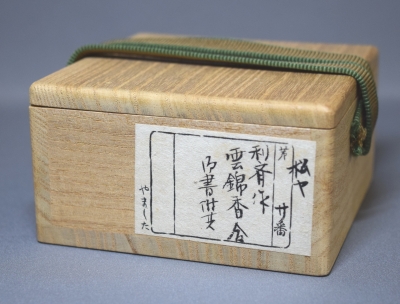 松ヤ
第 廿番
利斉作
雲錦香合
乃書附共
やました